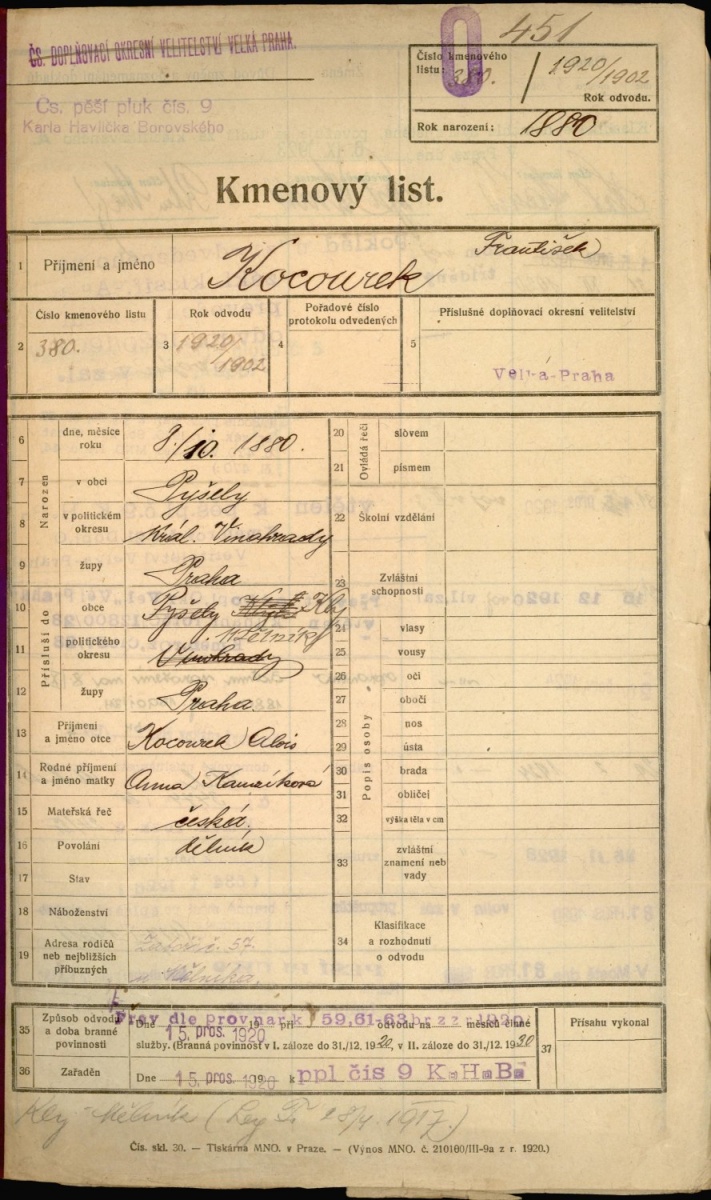 451
ČS. DOPLŇOVACÍ OKRESNÍ VELITELSTVÍ VELKÁ PRAHA.
Čs. pěší pluk čís. 9
Karla Havlíčka Borovského
Číslo kmenového
listu: 380.
1920/1902
Rok odvodu.
Rok narození: 1880
Kmenový list.
1 Příjmení a jméno Kocourek František
Číslo kmenového listu
2 380.
Rok odvodu
3 1920/1902
Pořadové číslo
protokolu odvedených
4
Příslušné doplňovací okresní velitelství
5 Velká-Praha
Narozen
6 dne, měsíce
roku 8./10. 1880.
7 v obci Pyšely
8 v politickém
okresu Král. Vinohrady
9 župy Praha
Přísluší do
10 obce Pyšely Kly
11 politického
okresu Mělník Vinohrady
12 župy Praha.
13 Příjmení
a jméno otce Kocourek Alois
14 Rodné příjmení
a jméno matky Anna Kamzíková
15 Mateřská řeč česká
16 Povolání dělník
17 Stav
18 Náboženství
19 Adresa rodičů
neb nejbližších
příbuzných č. 57
u Mělníka.
Ovládá řeči
20 slovem
21 písmem
22 Školní vzdělání
23 Zvláštní
schopnosti
Popis osoby
24 vlasy
25 vousy
26 oči
27 obočí
28 nos
29 ústa
30 brada
31 obličej
32 výška těla v cm
33 zvláštní
znamení neb
vady
34 Klasifikace
a rozhodnutí
o odvodu
35 Způsob odvodu
a doba branné
povinnosti
dle prov. nar. k 59, 61-63 br z z r 1920
Dne 15. pros. 1920 19 při odvodu na měsíců činné
služby. (Branná povinnost v I. záloze do 31./12. 1920, v II. záloze do 31./12. 1930
36 Zařaděn Dne 15. pros. 1920 k ppl čis 9 K.H.B.
37 Přísahu vykonal
Kly Mělník ( 28/4 1917)
Čís. skl. 30. — Tiskárna MNO. v Praze. — (Výnos MNO. č. 210180/III-9a z r. 1920.)